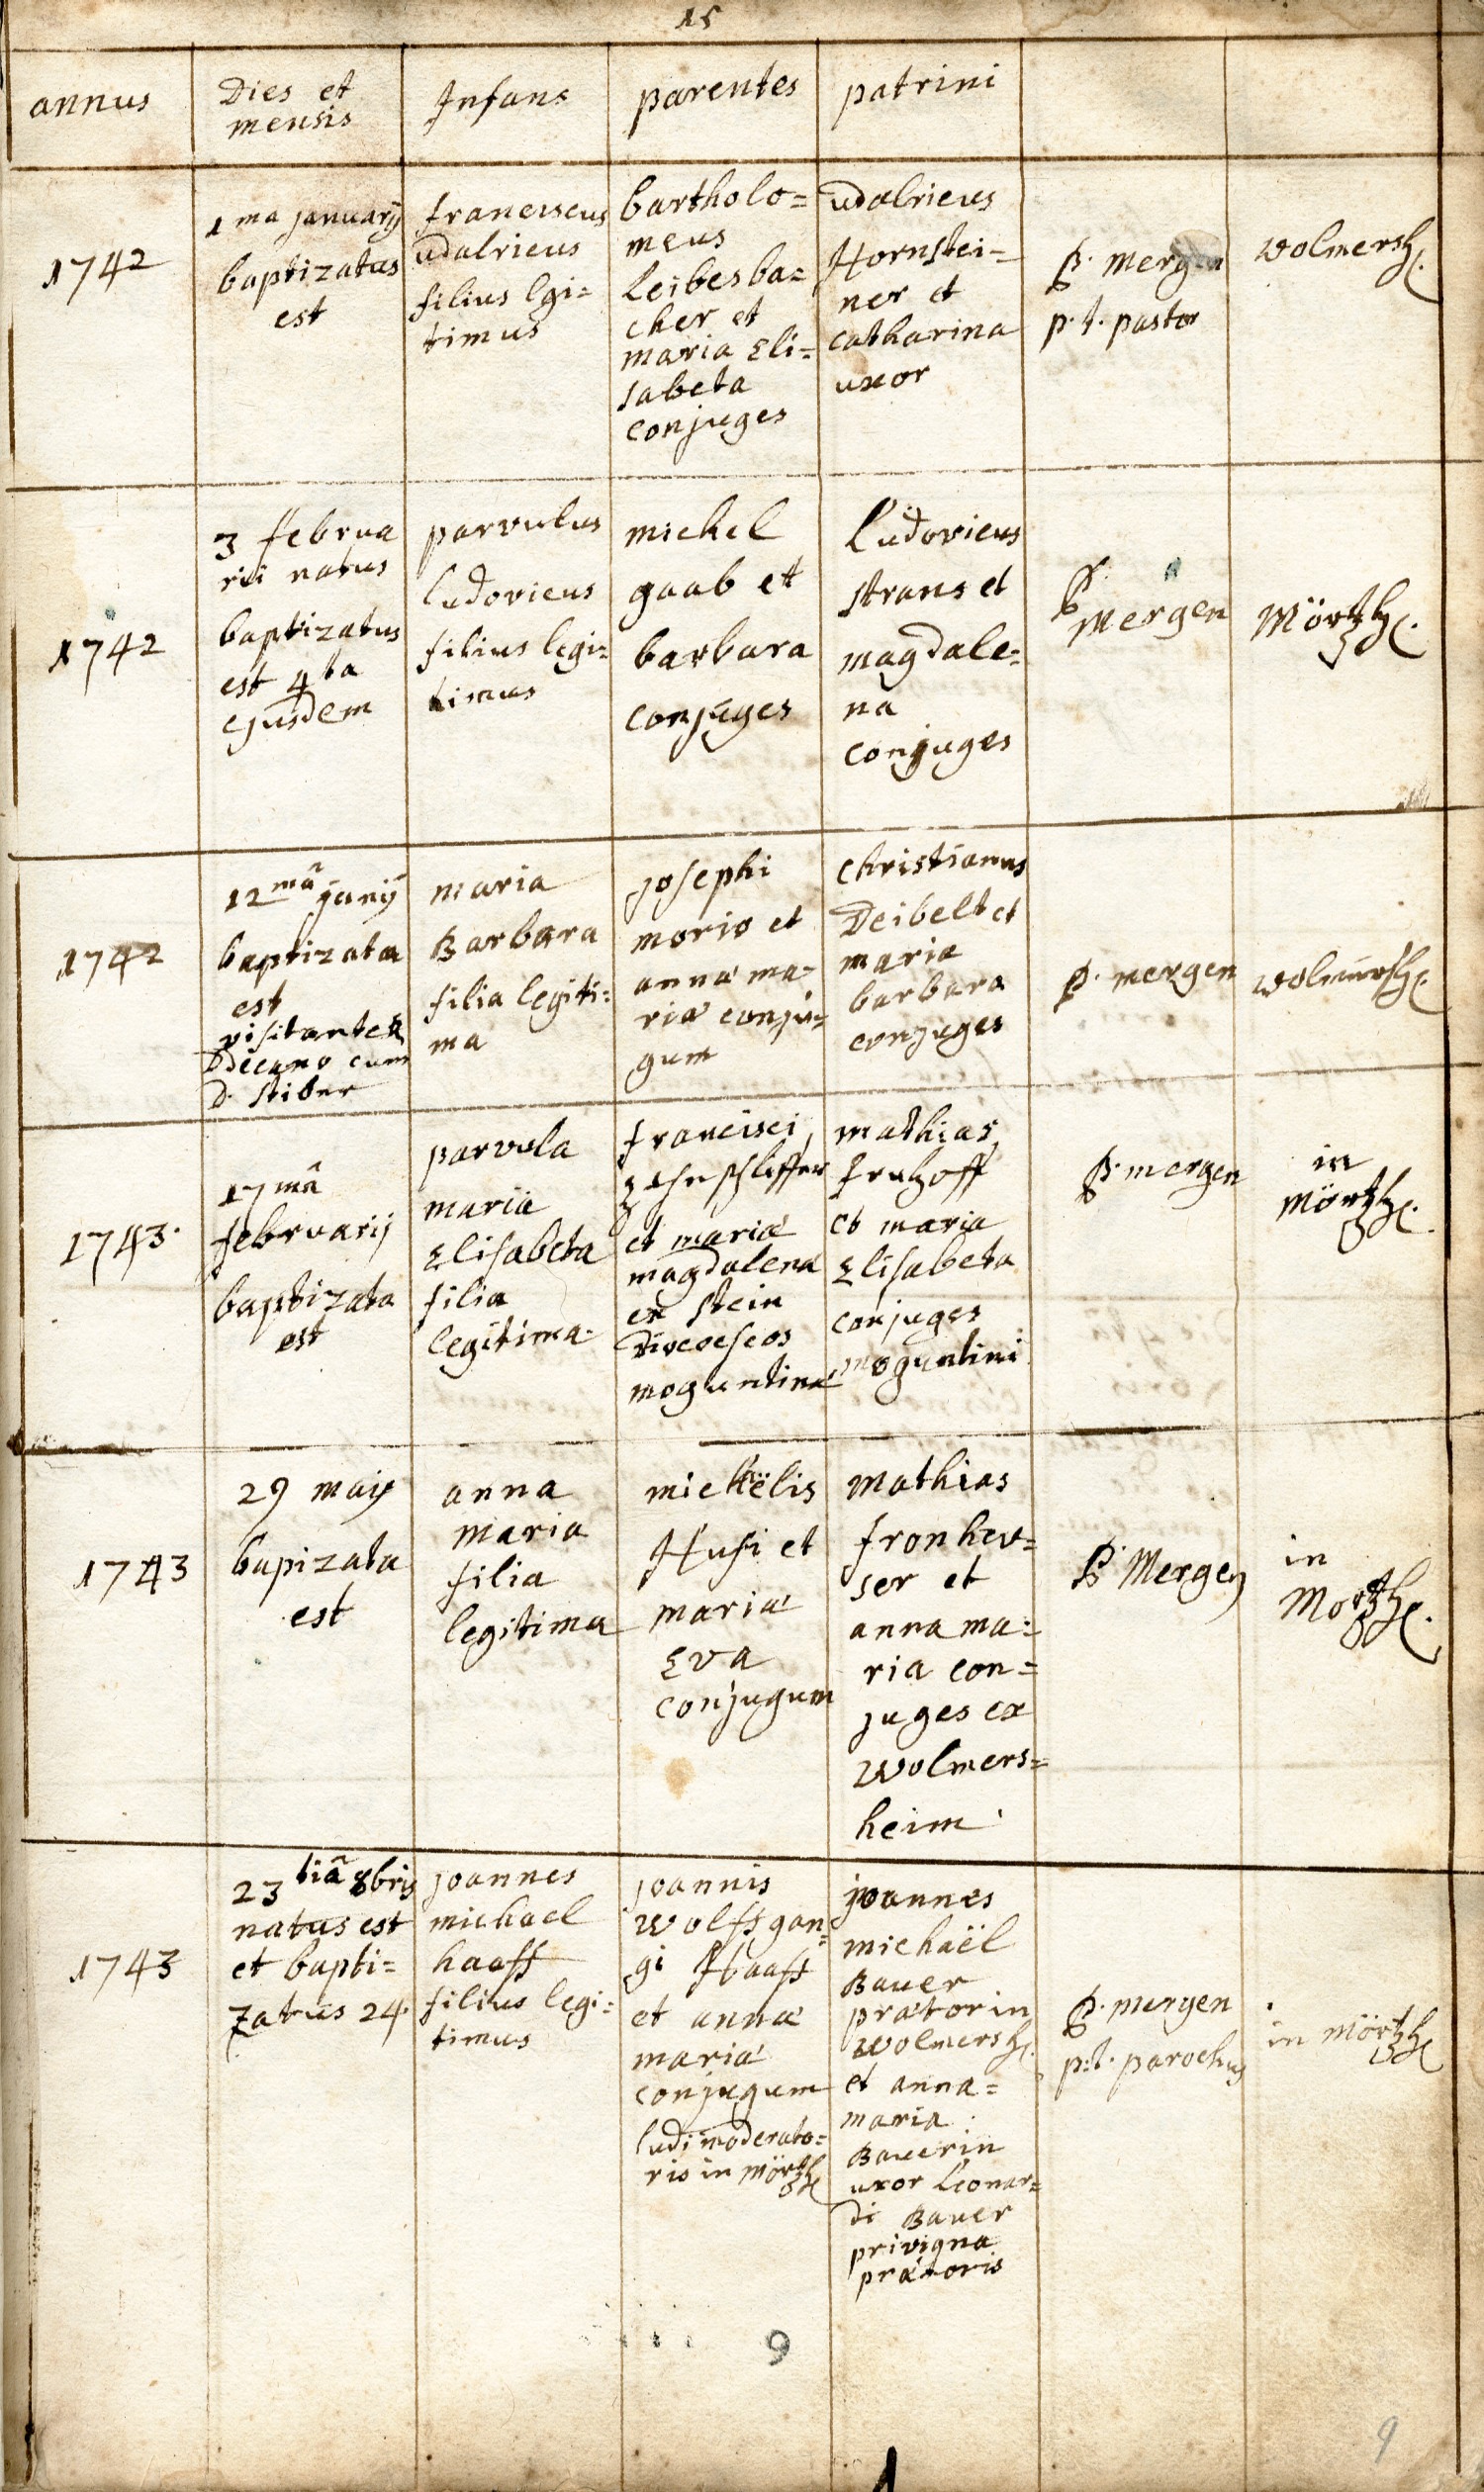 15
annus
Dies et
mensis
Infans
parentes
patrini
1742
1ma januarij
baptizatus
est
franciscus
udalricus
filius lgi=
timus
bartholo=
meus
Leibesba=
cher et
maria Eli=
sabeta
conjuges
udalricus
Hornstei=
ner et
catharina
uxor
P. mergen
p. t. pastor
wolmersh.
1742
3 februa
rii natus
baptizatus
est 4ta
ejusdem
parvulus
ludovicus
filius legi=
timus
michel
gaab et
barbara
conjuges
Ludovicus
strans et
magdale=
na
conjuges
P.
Mergen
Mörtzh.
1742
12mâ junij
baptizata
est
visitante R
Ddecano cum
D. stiber
maria
Barbara
filia legiti=
ma
josephi
morio et
annæ ma=
riæ conju=
gum
christianus
Deibelt et
maria
barbara
conjuges
P. mergen
wolmersh.
1743.
17mâ
februarij
baptizata
est
parvula
maria
Elisabeta
filia
legitima.
francisci
et mariæ
magdalena
ex stein
dioeceseos
moguntinæ
mathias
et maria
Elisabeta
conjuges
moguntini
P. mergen
in
mörtzh.
1743
29 maij
bapizata
est
anna
maria
filia
legitima
michaëlis
Husi et
mariæ
Eva
conjugum
Mathias
fronheu=
ser et
anna ma=
ria con=
juges ex
wolmers=
heim
P. Mergen
in
Mortzh.
1743
23tiâ 8bris
natus est
et bapti=
zatus 24.
joannes
michael
haaff
filius legi=
timus
joannis
Wolffgan=
gi Haaff
et annæ
mariæ
conjugum
ludi moderato=
ris in mörtzh
joannes
michaël
Bauer
prætor in
wolmersh.
et anna=
maria
Bauerin
uxor Leonar=
di Bauer
privigna
prætoris
P. mergen
p. t. parochus
in mörtzh
9
9